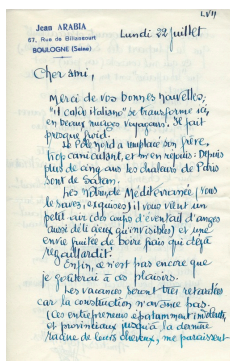 LVII
Jean ARABIA
57, Rue de Billancourt
BOULOGNE (Seine)
Lundi 22 juillet
Cher ami,
Merci de vos bonnes nouvelles.
"il caldo italiano" se transforme ici,
en beaux nuages voyageurs. Il fait
presque froid.
Le Pôle nord a remplacé son frère,
trop caniculant, et m'en réjouis : Depuis
plus de cinq ans les chaleurs de Paris
sont de Satan.
Méditerranée (vous
le savez, exquises) il vous vient un
petit air (des coups d'éventail d'anges
aussi délicieux qu'invisibles) et une
envie fruitée de boire frais qui déjà
regaillardit.
Enfin, ce n'est pas encore que
je goûterai à ces plaisirs.
Les vacances seront très retardées
car la construction n'avance pas.
(Ces entrepreneurs épatamment indolents
et provinciaux jusqu'à la dernière
racine de leurs cheveux, me paraissent